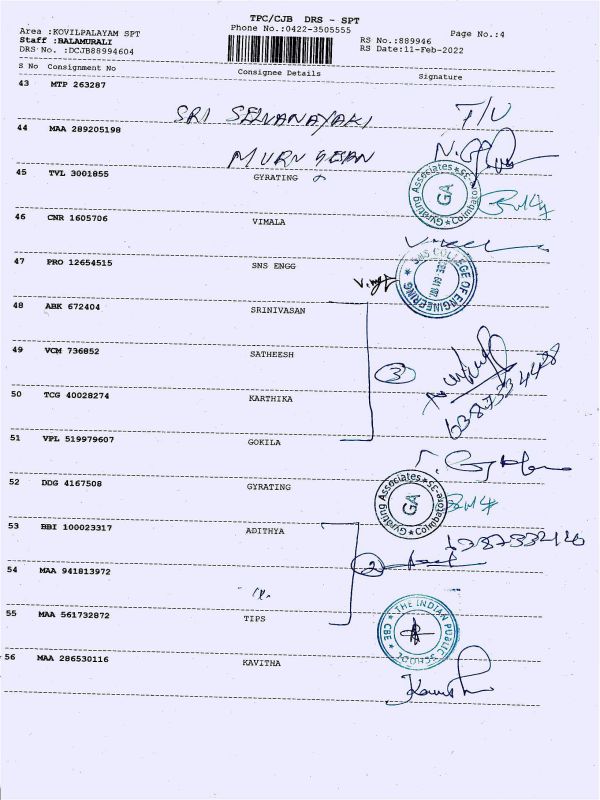 TPC/CJB DRS - SPT
Area :KOVILPALAYAM SPT Phone No.:0422-3505555 Page No.:4
Staff :BALAMURALI RS No.:889946
DRS No. :DCJB88994604 RS Date:11-Feb-2022
S No Consignment No Consignee Details Signature
43 MTP 263287
SRI SELVANAYAKI T/U
44 MAA 289205198
MURUGESAN
45 TVL 3001855 GYRATING
Gyrating Associates Coimbatore-35 GA
46 CNR 1605706 VIMALA
47 PRO 12654515 SNS ENGG
SNS COLLEGE OF ENGINEERING
48 ABK 672404 SRINIVASAN
49 VCM 736852 SATHEESH
3
50 TCG 40028274 KARTHIKA
51 VPL 519979607 GOKILA
52 DDG 4167508 GYRATING
Gyrating Associates Coimbatore-35 GA
53 BBI 100023317 ADITHYA
2
54 MAA 941813972
55 MAA 561732872 TIPS
THE INDIAN PUBLIC SCHOOL CBE
56 MAA 286530116 KAVITHA